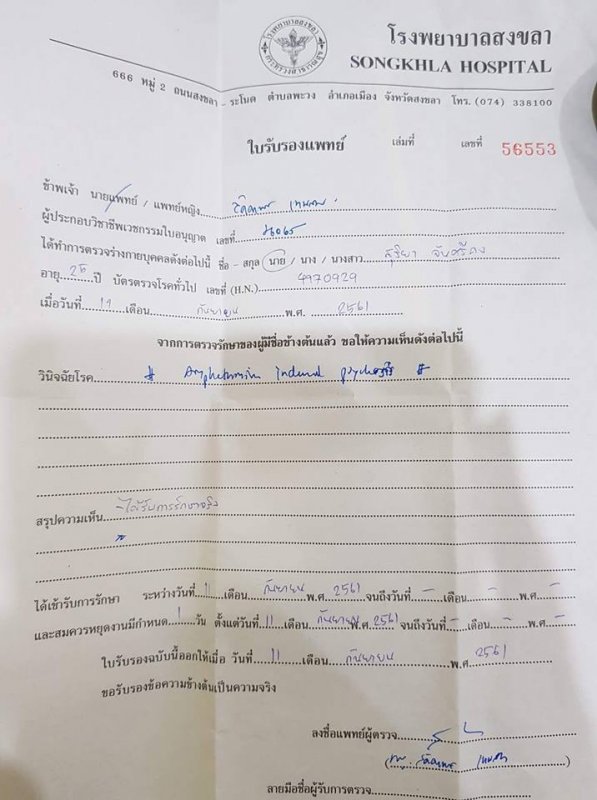 โรงพยาบาลสงขลา
SONGKHLA HOSPITAL
666 หมู่ 2 ถนนสงขลา - ระโนด ตำบลพะวง อำเภอเมือง จังหวัดสงขลา โทร. (074) 338100
ใบรับรองแพทย์ เล่มที่ เลขที่ 56553
ข้าพเจ้า นายแพทย์ / แพทย์หญิง
ผู้ประกอบวิชาชีพเวชกรรมใบอนุญาต เลขที่
ได้ทำการตรวจร่างกายบุคคลดังต่อไปนี้ ชื่อ - สกุล นาย / นาง / นางสาว สุริยา
อายุ 26 ปี บัตรตรวจโรคทั่วไป เลขที่ (H.N.) 4970929
เมื่อวันที่ 11 เดือน กันยายน พ.ศ. 2561
จากการตรวจรักษาของผู้มีชื่อข้างต้นแล้ว ขอให้ความเห็นดังต่อไปนี้
วินิจฉัยโรค # Amphetamin induced psychosis #
สรุปความเห็น - ได้รับการรักษาจริง
ได้เข้ารับการรักษา ระหว่างวันที่ 11 เดือน กันยายน พ.ศ. 2561 จนถึงวันที่ - เดือน - พ.ศ. -
และสมควรหยุดงานมีกำหนด 1 วัน ตั้งแต่วันที่ 11 เดือน กันยายน พ.ศ. 2561 จนถึงวันที่ - เดือน - พ.ศ. -
ใบรับรองฉบับนี้ออกให้เมื่อ วันที่ 11 เดือน กันยายน พ.ศ. 2561
ขอรับรองข้อความข้างต้นเป็นความจริง
ลงชื่อแพทย์ผู้ตรวจ
ลายมือชื่อผู้รับการตรวจ